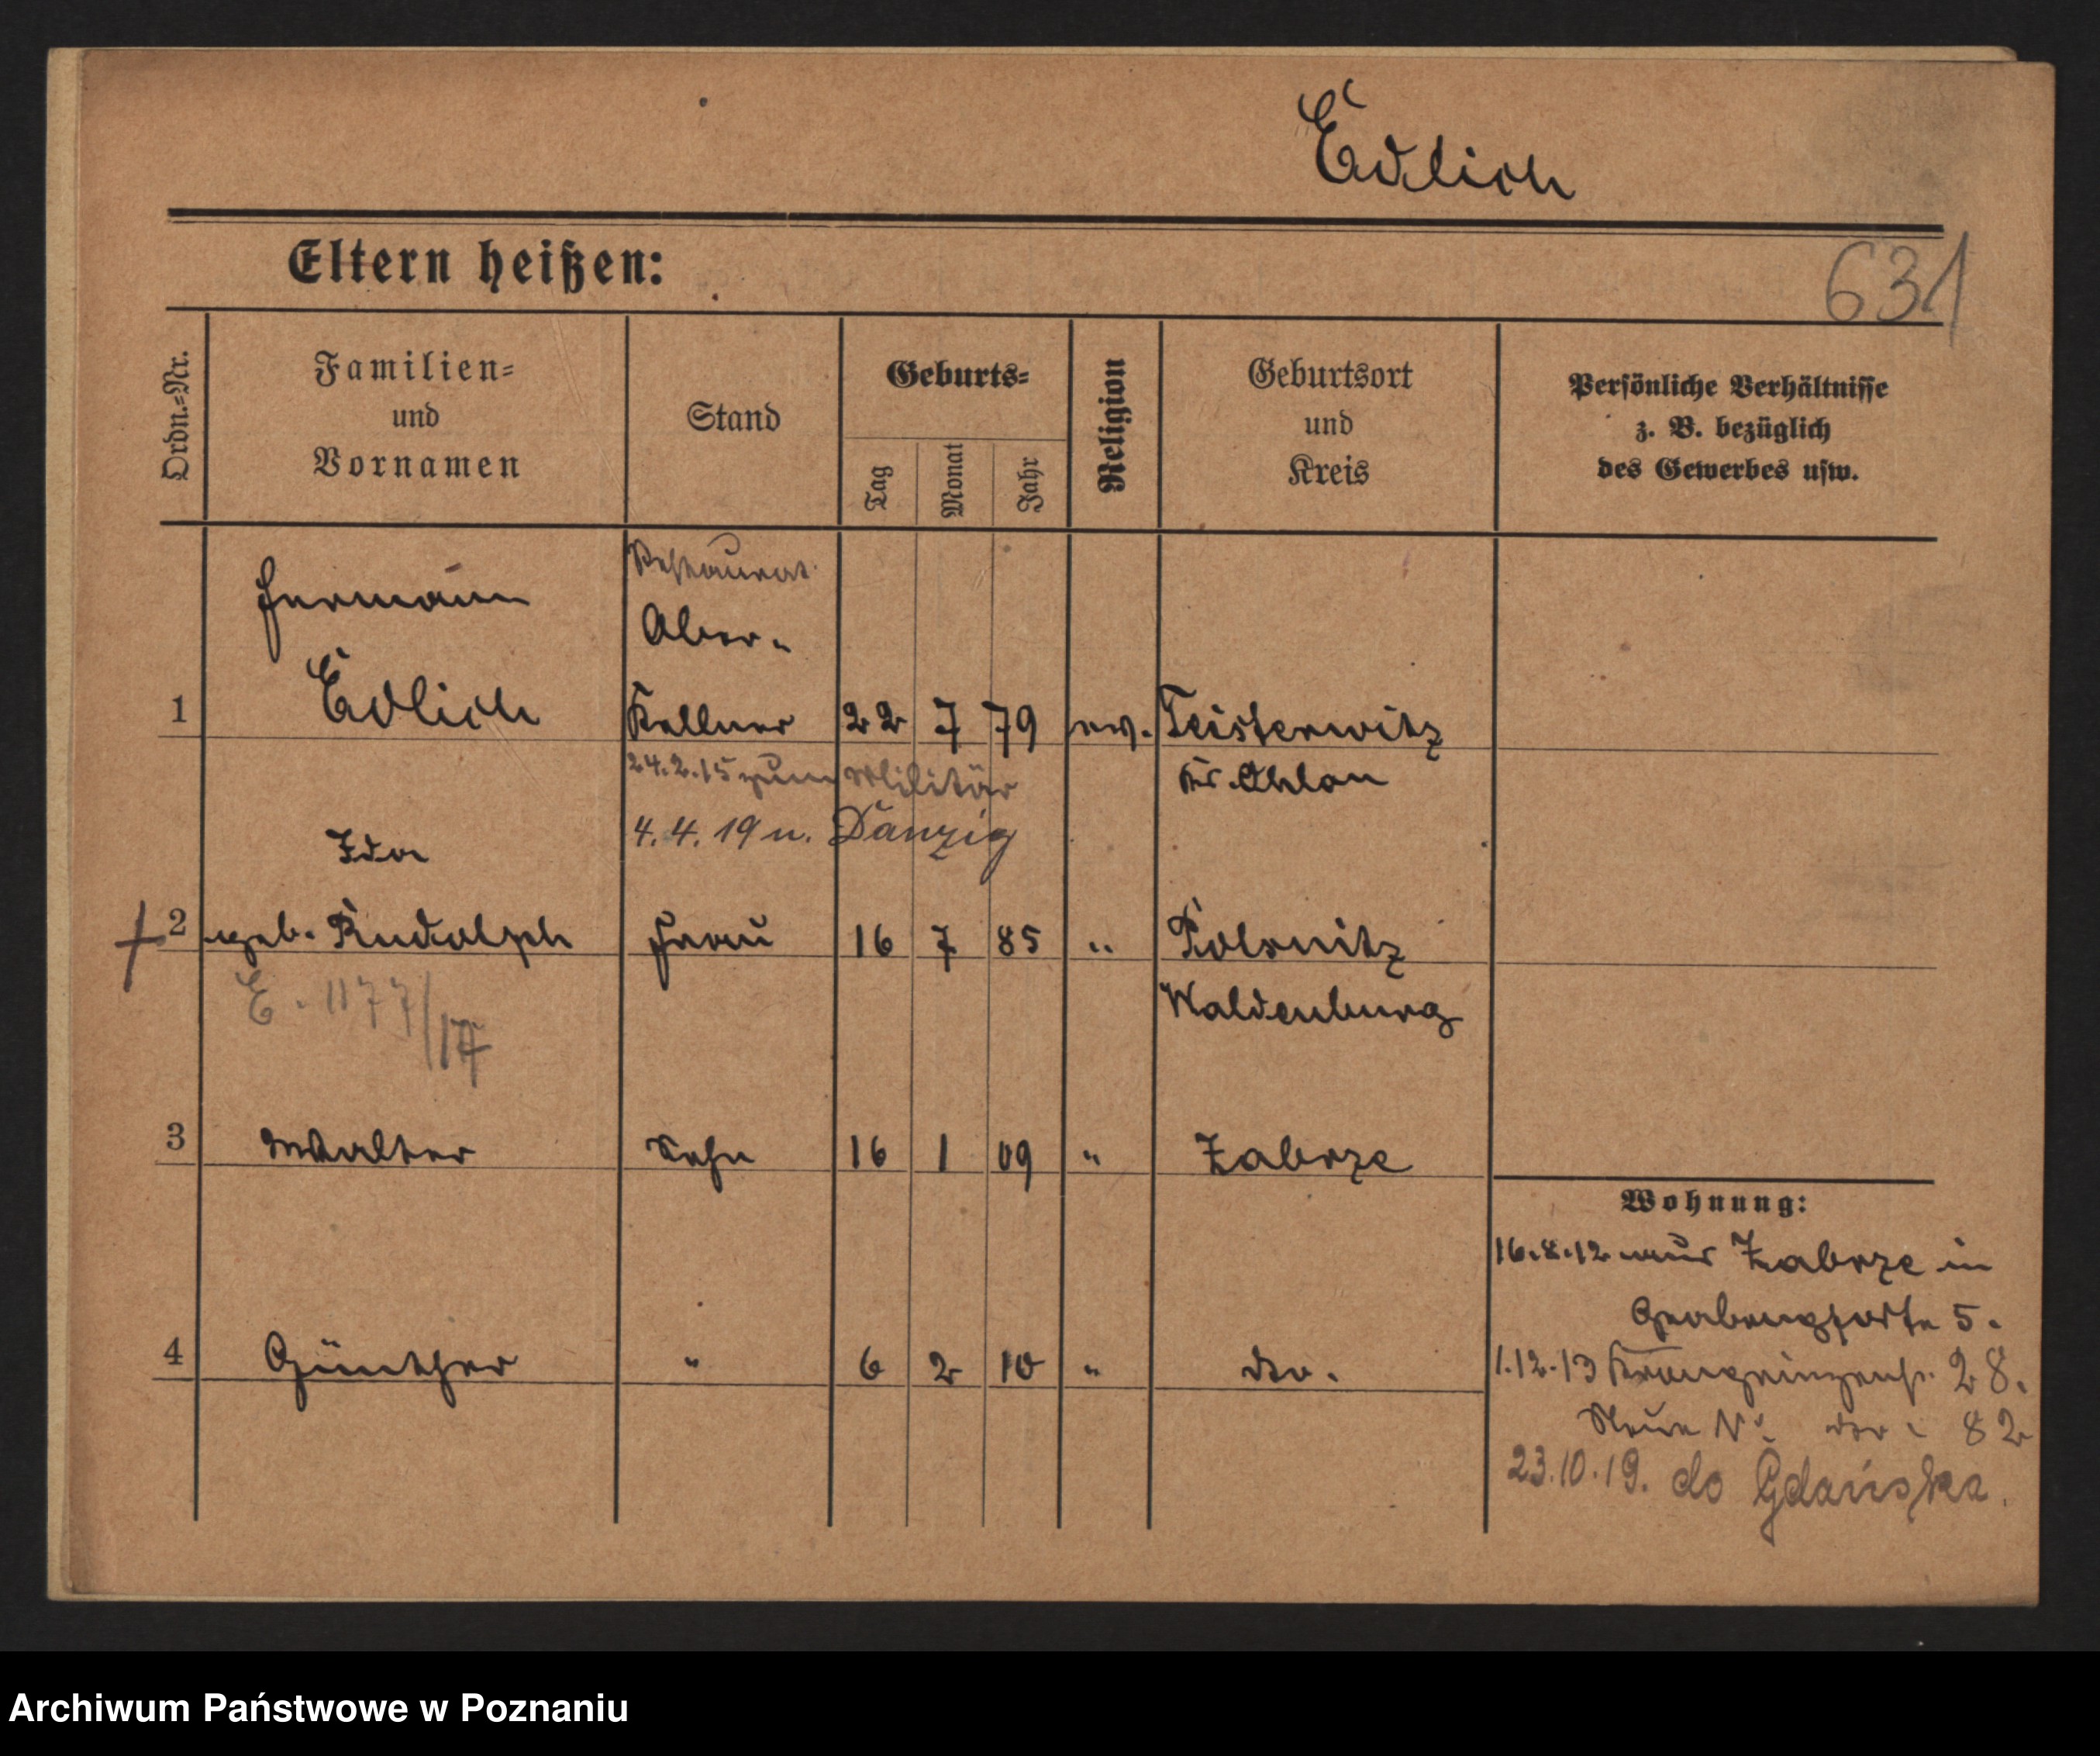 Edlich
Eltern heißen:
631
Ordn.=Nr.
Familien=
und
Vornamen
Stand
Geburts=
Tag
Monat
Jahr
Religion
Geburtsort
und
Kreis
Persönliche Verhältnisse
z. B. bezüglich
des Gewerbes usw.
Hermann
Edlich
Restaurat.
Ober-
1 Kellner 22 7 79 ev. Teisterwitz
24.2.15 zum Militär
Kr. Ohlau
4.4.19 n. Danzig
Ida
2 geb. Rudolph Frau 16 7 85 " Polsnitz
E. 1177/17
Waldenburg
3 Walter Sohn 16 1 09 " Zabrze
4 Günther " 6 2 10 " do.
Wohnung:
16.8.12 aus Zabrze in
Grabenpforte 5.
1.12.13 Kronprinzenstr. 28.
Neue Nr. do. 82
23.10.19. do Gdańska.
Archiwum Państwowe w Poznaniu